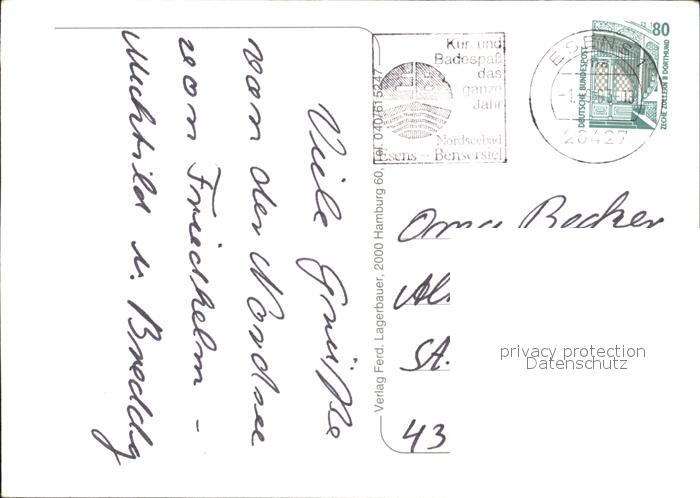 Viele Grüße
von der Nordsee
von Friedhelm -
Mechtild u.
Verlag Ferd. Lagerbauer, 2000 Hamburg 60, Tel. 040/6152
Kur und
Badespaß
das
ganze
Jahr
Nordseebad
Esens – Bensersiel
ESENS
80
DEUTSCHE BUNDESPOST
ZECHE ZOLLERN II DORTMUND
Oma Becker
St.
43
privacy protection
Datenschutz